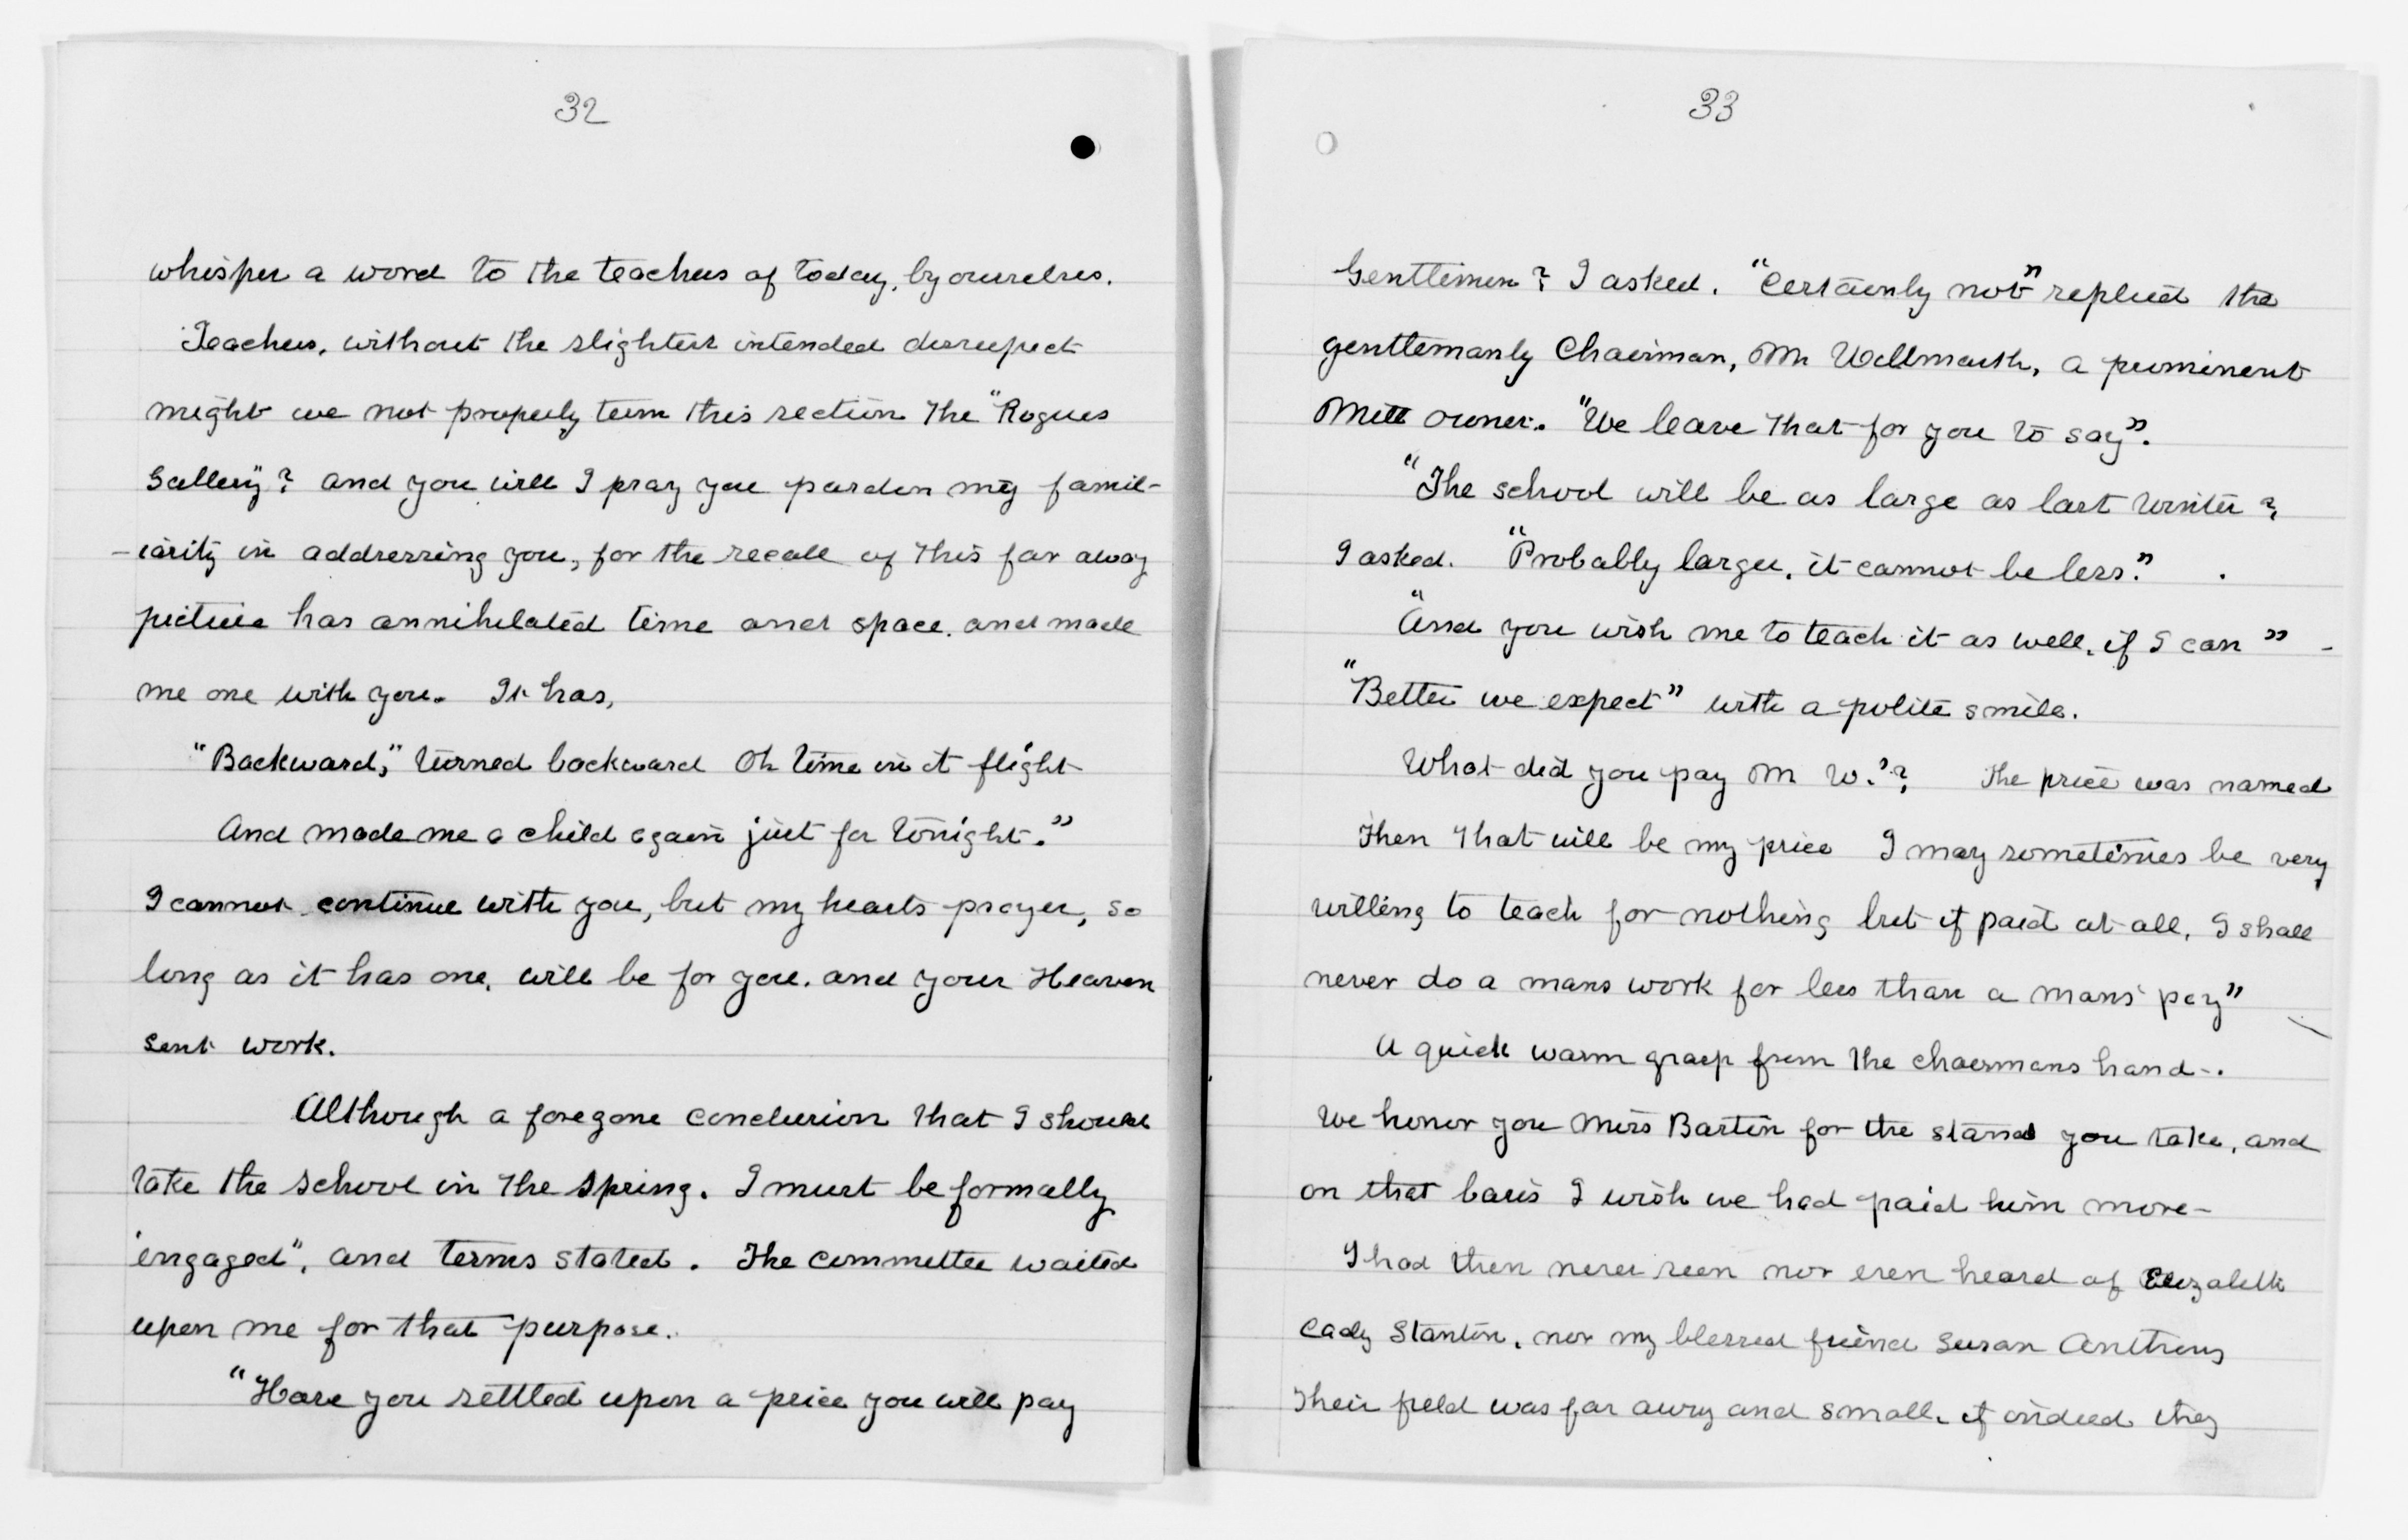 32
whisper a word to the teachers of today, by ourselves.
Teachers, without the slightest intended disrespect
might we not properly term this section the "Rogues
Gallery"? and you will I pray you pardon my famil-
-iarity in addressing you, for the recall of this far away
picture has annihilated time and space. and made
me one with you. It has,
"Backward," turned backward Oh time in it flight
And made me a child again just for tonight."
I cannot continue with you, but my hearts prayer, so
long as it has one, will be for you. and your Heaven
sent work.
Although a foregone conclusion that I should
take the school in the spring. I must be formally
"engaged", and terms stated. The committee waited
upon me for that purpose.
"Have you settled upon a price you will pay
33
Gentlemen? I asked. "Certainly not" replied the
gentlemanly Chairman, Mr Wellmarth, a prominent
Mill owner. "We leave that for you to say".
"The school will be as large as last winter?
I asked. "Probably larger, it cannot be less."
"And you wish me to teach it as well, if I can" -
"Better we expect" with a polite smile.
What did you pay M W.'? The price was named
Then that will be my price I may sometimes be very
willing to teach for nothing but if paid at all, I shall
never do a mans work for less than a mans pay"
A quick warm grasp from the chairmans hand-.
We honor you Miss Barton for the stand you take, and
on that basis I wish we had paid him more-
I had then never seen nor even heard of Elizabeth
Cady Stanton, nor my blessed friend Susan Anthony
Their field was far away and small. if indeed they